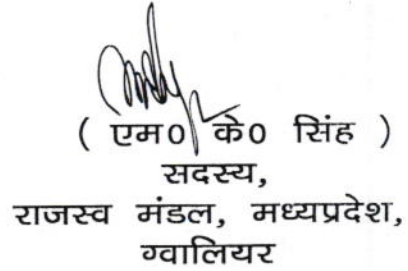 ( एम0 के0 सिंह )
सदस्य,
राजस्व मंडल, मध्यप्रदेश,
ग्वालियर